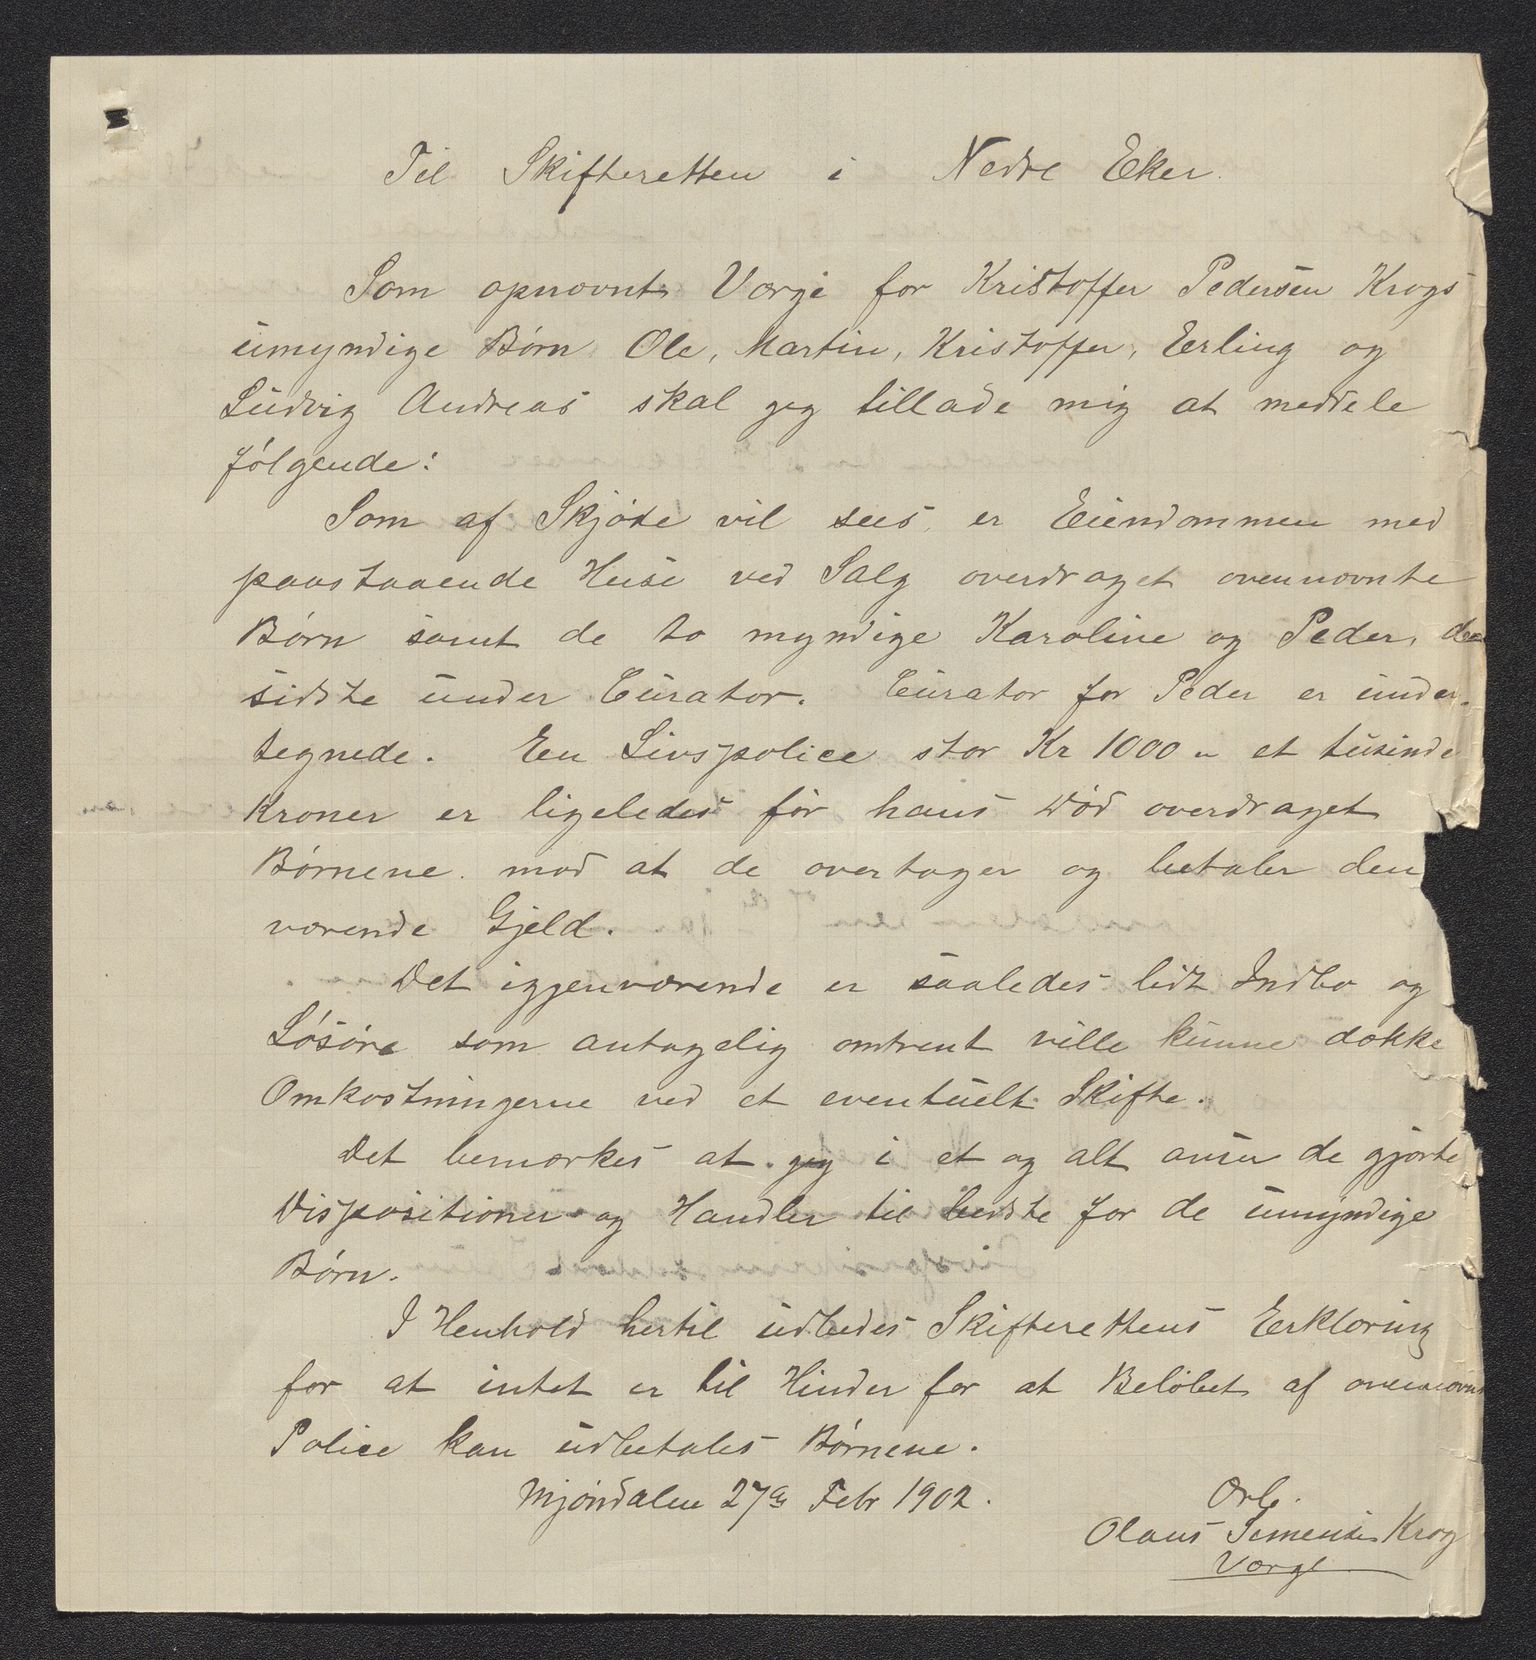 Til Skifteretten i Nedre Eker.
Som opnævnt Værge for Kristoffer Pedersen Krogs
umyndige Børn Ole, Martin, Kristoffer, Erling og
Ludvig Andreas skal jeg tillade mig at meddele
følgende:
Som af Skjøde vil sees er Eiendommen med
paastaaende Huse ved Salg overdraget ovennævnte
Børn samt de to myndige Karoline og Peder, den
sidste under Curator. Curator for Peder er under-
tegnede. En Livspolice stor Kr 1000 - et tusinde
Kroner er ligeledes før hans Død overdraget
Børnene mod at de overtager og betaler den
værende Gjeld.
Det iggjenværende er saaledes lidt Indbo og
Løsøre som antagelig omtrent ville kunne dække
Omkostningerne ved et eventuelt Skifte.
Det bemærkes at jeg i et og alt anser de gjorte
Dispositioner og Handler til bedste for de umyndige
Børn.
I Henhold hertil udbedes Skifterettens Erklæring
for at intet er til Hinder for at Beløbet af ovennævnt
Police kan udbetales Børnene.
Mjøndalen 27de Febr 1902.
Ærb.
Olaus Simensen Krog
Værge